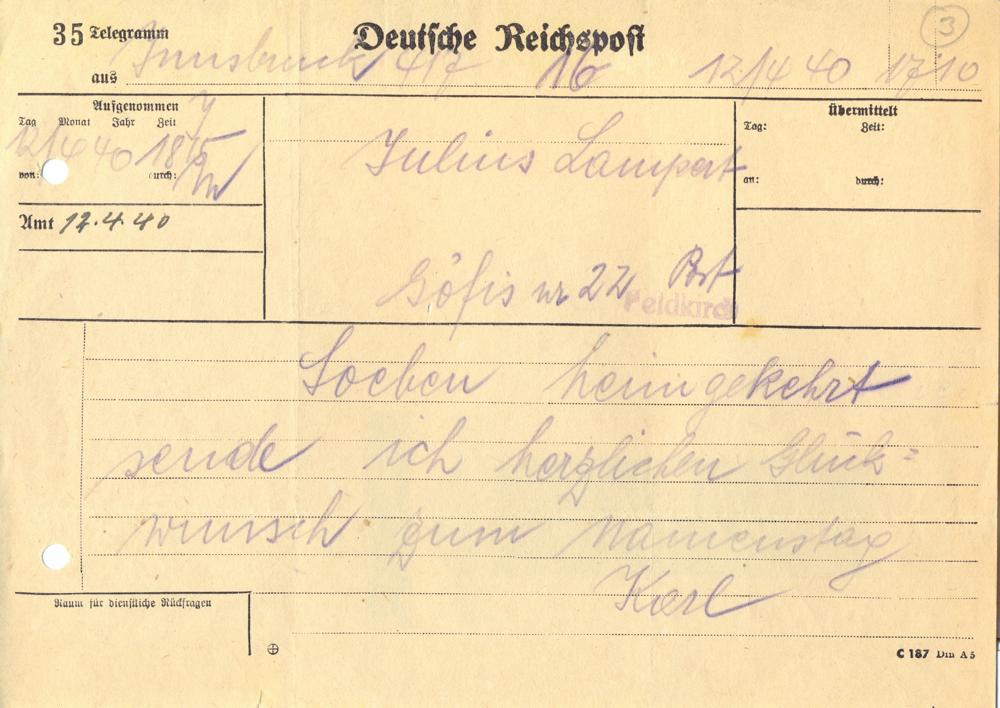 35 Telegramm Deutsche Reichspost 3
aus Innsbruck 417 16 12/4 40 1710
Aufgenommen
Tag Monat Jahr Zeit
12/4 40 1815
von: durch:
Amt 12.4.40
Julius Lampert
Göfis nr 22 Post
Feldkirch
Übermittelt
Tag: Zeit:
an: durch:
Soeben heimgekehrt
sende ich herzlichen Glück=
wunsch zum Namenstag
Karl
Raum für dienstliche Rückfragen
C 187 Din A 5